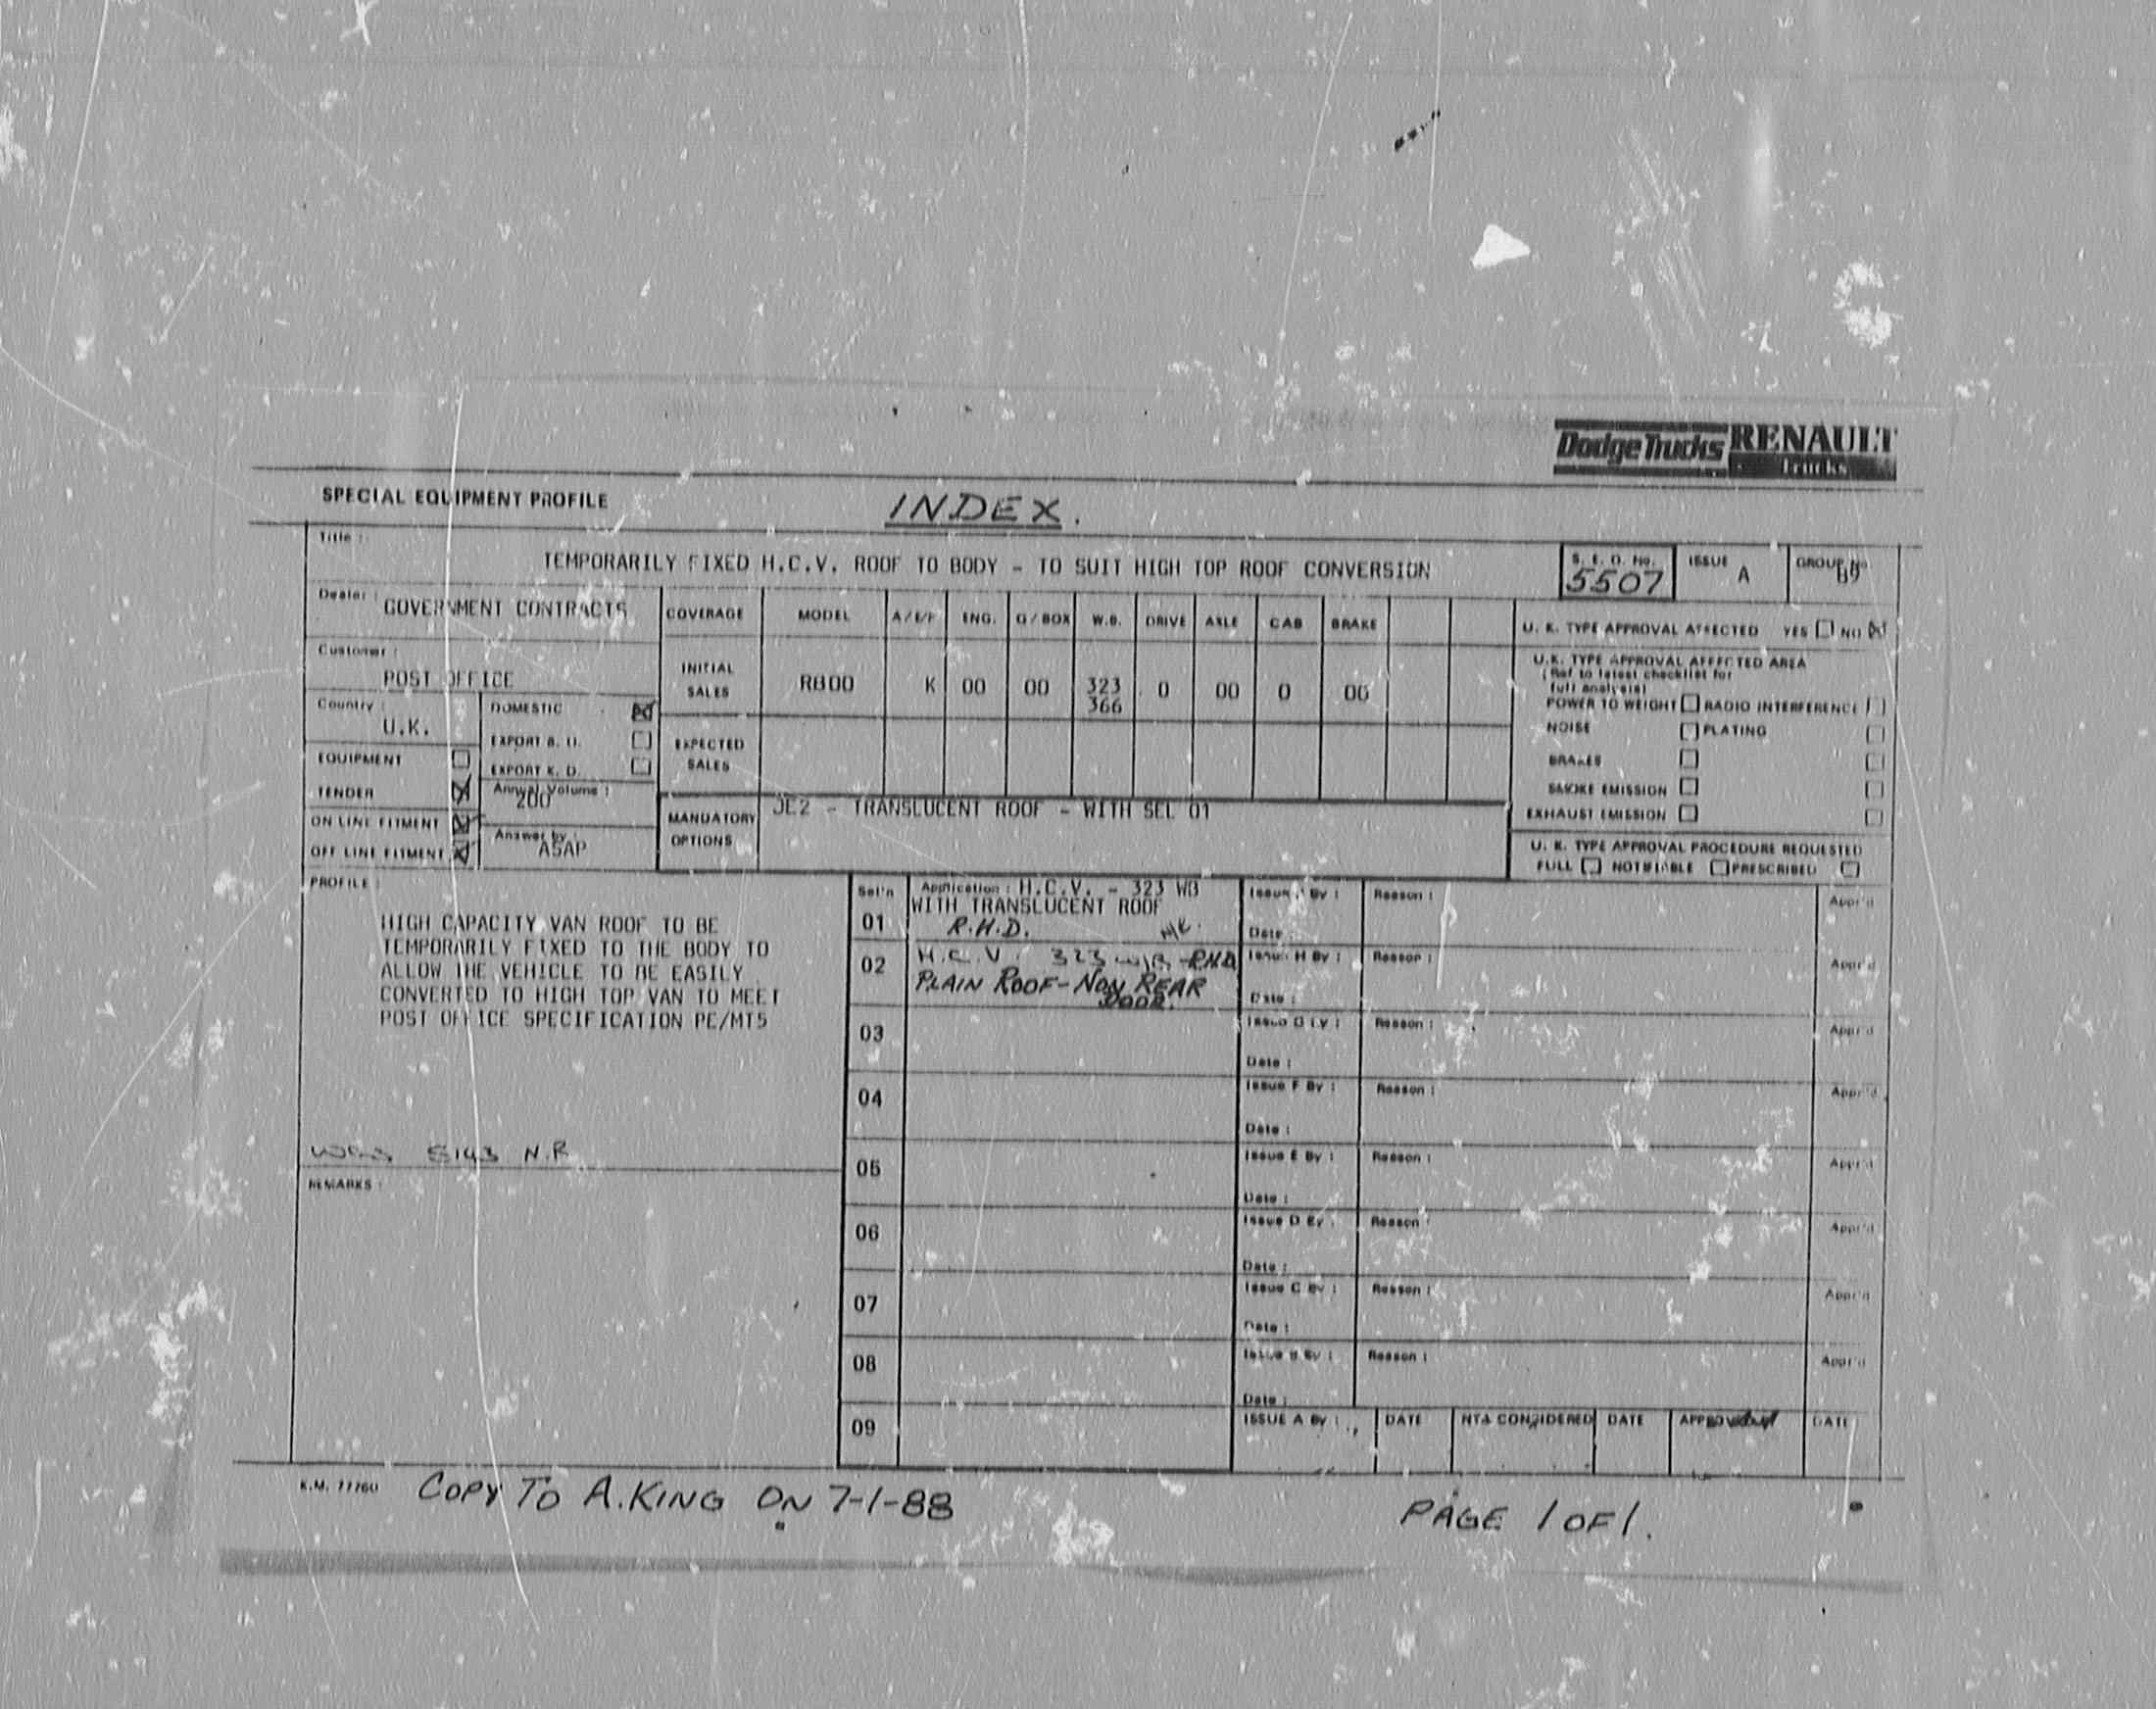 Dodge Trucks RENAULT
Trucks
SPECIAL EQUIPMENT PROFILE
INDEX.
Title :
TEMPORARILY FIXED H.C.V. ROOF TO BODY - TO SUIT HIGH TOP ROOF CONVERSION
S. E. O. No. 5507
ISSUE A
GROUP No 89
Dealer : GOVERNMENT CONTRACTS
Customer : POST OFFICE
Country : U.K.
DOMESTIC
EXPORT B. U.
EXPORT K. D.
EQUIPMENT
TENDER
ON LINE FITMENT
OFF LINE FITMENT
Annual Volume : 200
Answer by : ASAP
COVERAGE MODEL A/E/F ENG. G/BOX W.B. DRIVE AXLE CAB BRAKE
INITIAL SALES R800 K 00 00 323 0 00 0 00
366
EXPECTED SALES
MANDATORY OPTIONS JE2 - TRANSLUCENT ROOF - WITH SEL 01
U. K. TYPE APPROVAL AFFECTED YES NO
U.K. TYPE APPROVAL AFFECTED AREA
(Ref to latest checklist for
full analysis)
POWER TO WEIGHT RADIO INTERFERENCE
NOISE PLATING
BRAKES
SMOKE EMISSION
EXHAUST EMISSION
U. K. TYPE APPROVAL PROCEDURE REQUESTED
FULL NOTIFIABLE PRESCRIBED
PROFILE :
HIGH CAPACITY VAN ROOF TO BE
TEMPORARILY FIXED TO THE BODY TO
ALLOW THE VEHICLE TO BE EASILY
CONVERTED TO HIGH TOP VAN TO MEET
POST OFFICE SPECIFICATION PE/MT5
5143 N.R
REMARKS :
Sel'n Application : H.C.V. - 323 WB
WITH TRANSLUCENT ROOF
01 R.H.D.
02 H.C.V. 323 W/B - RHD
PLAIN ROOF - NON REAR
DOOR.
03
04
05
06
07
08
09
Issue By : Reason : Appr'd
Date :
Issue H By : Reason : Appr'd
Date :
Issue G By : Reason : Appr'd
Date :
Issue F By : Reason : Appr'd
Date :
Issue E By : Reason : Appr'd
Date :
Issue D By : Reason : Appr'd
Date :
Issue C By : Reason : Appr'd
Date :
Issue B By : Reason : Appr'd
Date :
ISSUE A By : DATE NTA CONSIDERED DATE APPROVED DATE
K.M. 11760
COPY TO A. KING ON 7-1-88
PAGE 1 OF 1.